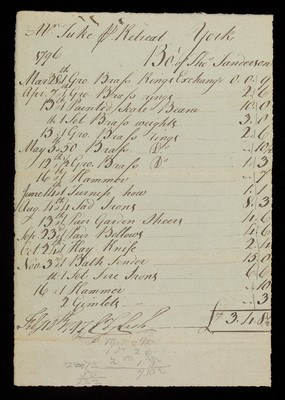 Mr Tuke for Retreat York
1796 Bo.t of Tho.s Sanderson
Mar 28th 1 Gro Brass Rings Exchange 0.0.9
Apr. 7th 1 Gro Brass rings 2.6
13th 1 Painted Scale Beam 10.0
th 1 Set Brass weights 3.0
15th 1 Gro. Brass rings 2.6
May 3 50 Brass 10½
12th ½ Gro. Brass 1.3
16th 1 Hammer 7
June first 1 Turnip how 1.1
Aug 4th 4 Sad Irons 8.3
13th 1 Pair Garden Sheers 4.6
Sep 23rd 1 Pair Bellows 4.6
Oct 24th 1 Hay Knife 2.4
Nov 3rd 1 Bath Fender 15.0
th 1 Set Fire Irons 6.6
16th 1 Hammer 10
2 Gimlets 3
£ 3.4.8½